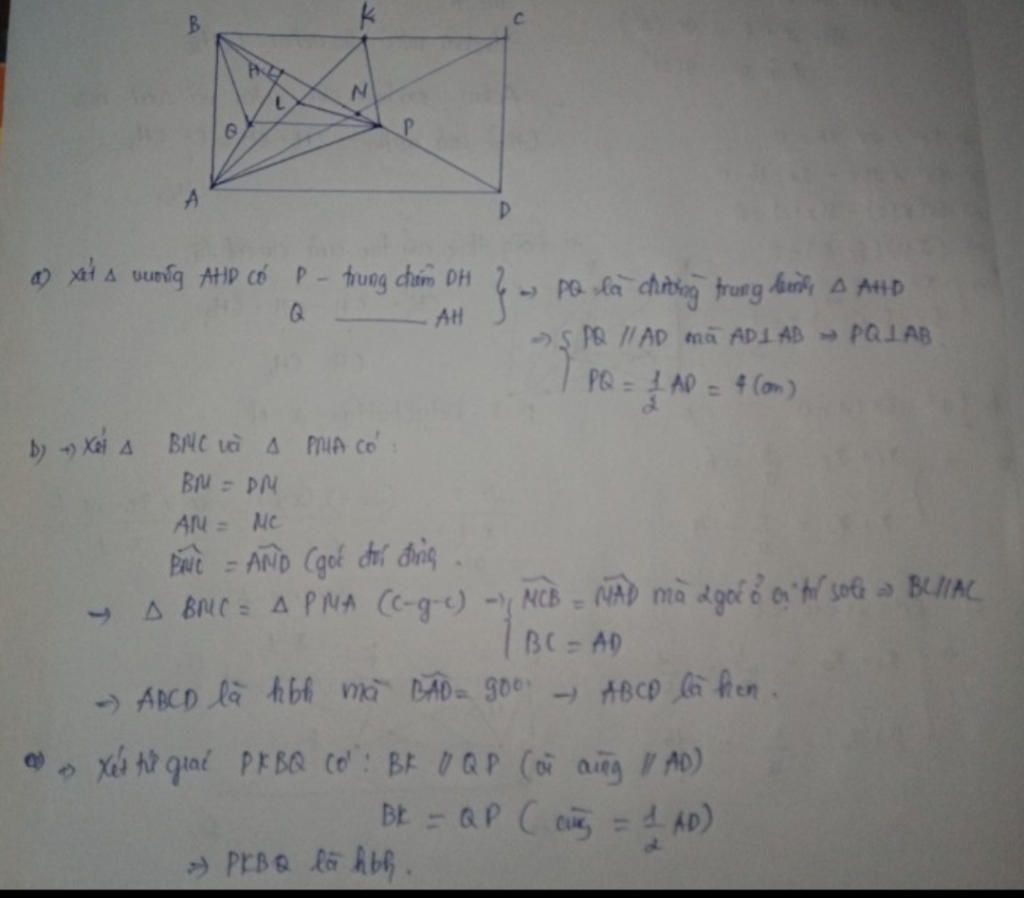 B K C
H L N
Q P
A D
a) Xét Δ vuông AHD có P - trung điểm DH } → PQ là đường trung bình Δ AHD
Q ——— AH
⇒ { PQ // AD mà AD⊥AB ⇒ PQ⊥AB
PQ = 1/2 AD = 4 (cm)
b) → Xét Δ BNC và Δ PNA có :
BN = DN
AN = NC
BNC = AND (góc đối đỉnh .
→ Δ BNC = Δ PNA (c-g-c) → { NCB = NAD mà 2 góc ở vị trí sole ⇒ BC//AC
BC = AD
→ ABCD là hbh mà BAD = 90° → ABCD là hcn .
⇒ Xét tứ giác PKBQ có : BK // QP (vì cùng // AD)
BK = QP ( cùng = 1/2 AD)
⇒ PKBQ là hbh .